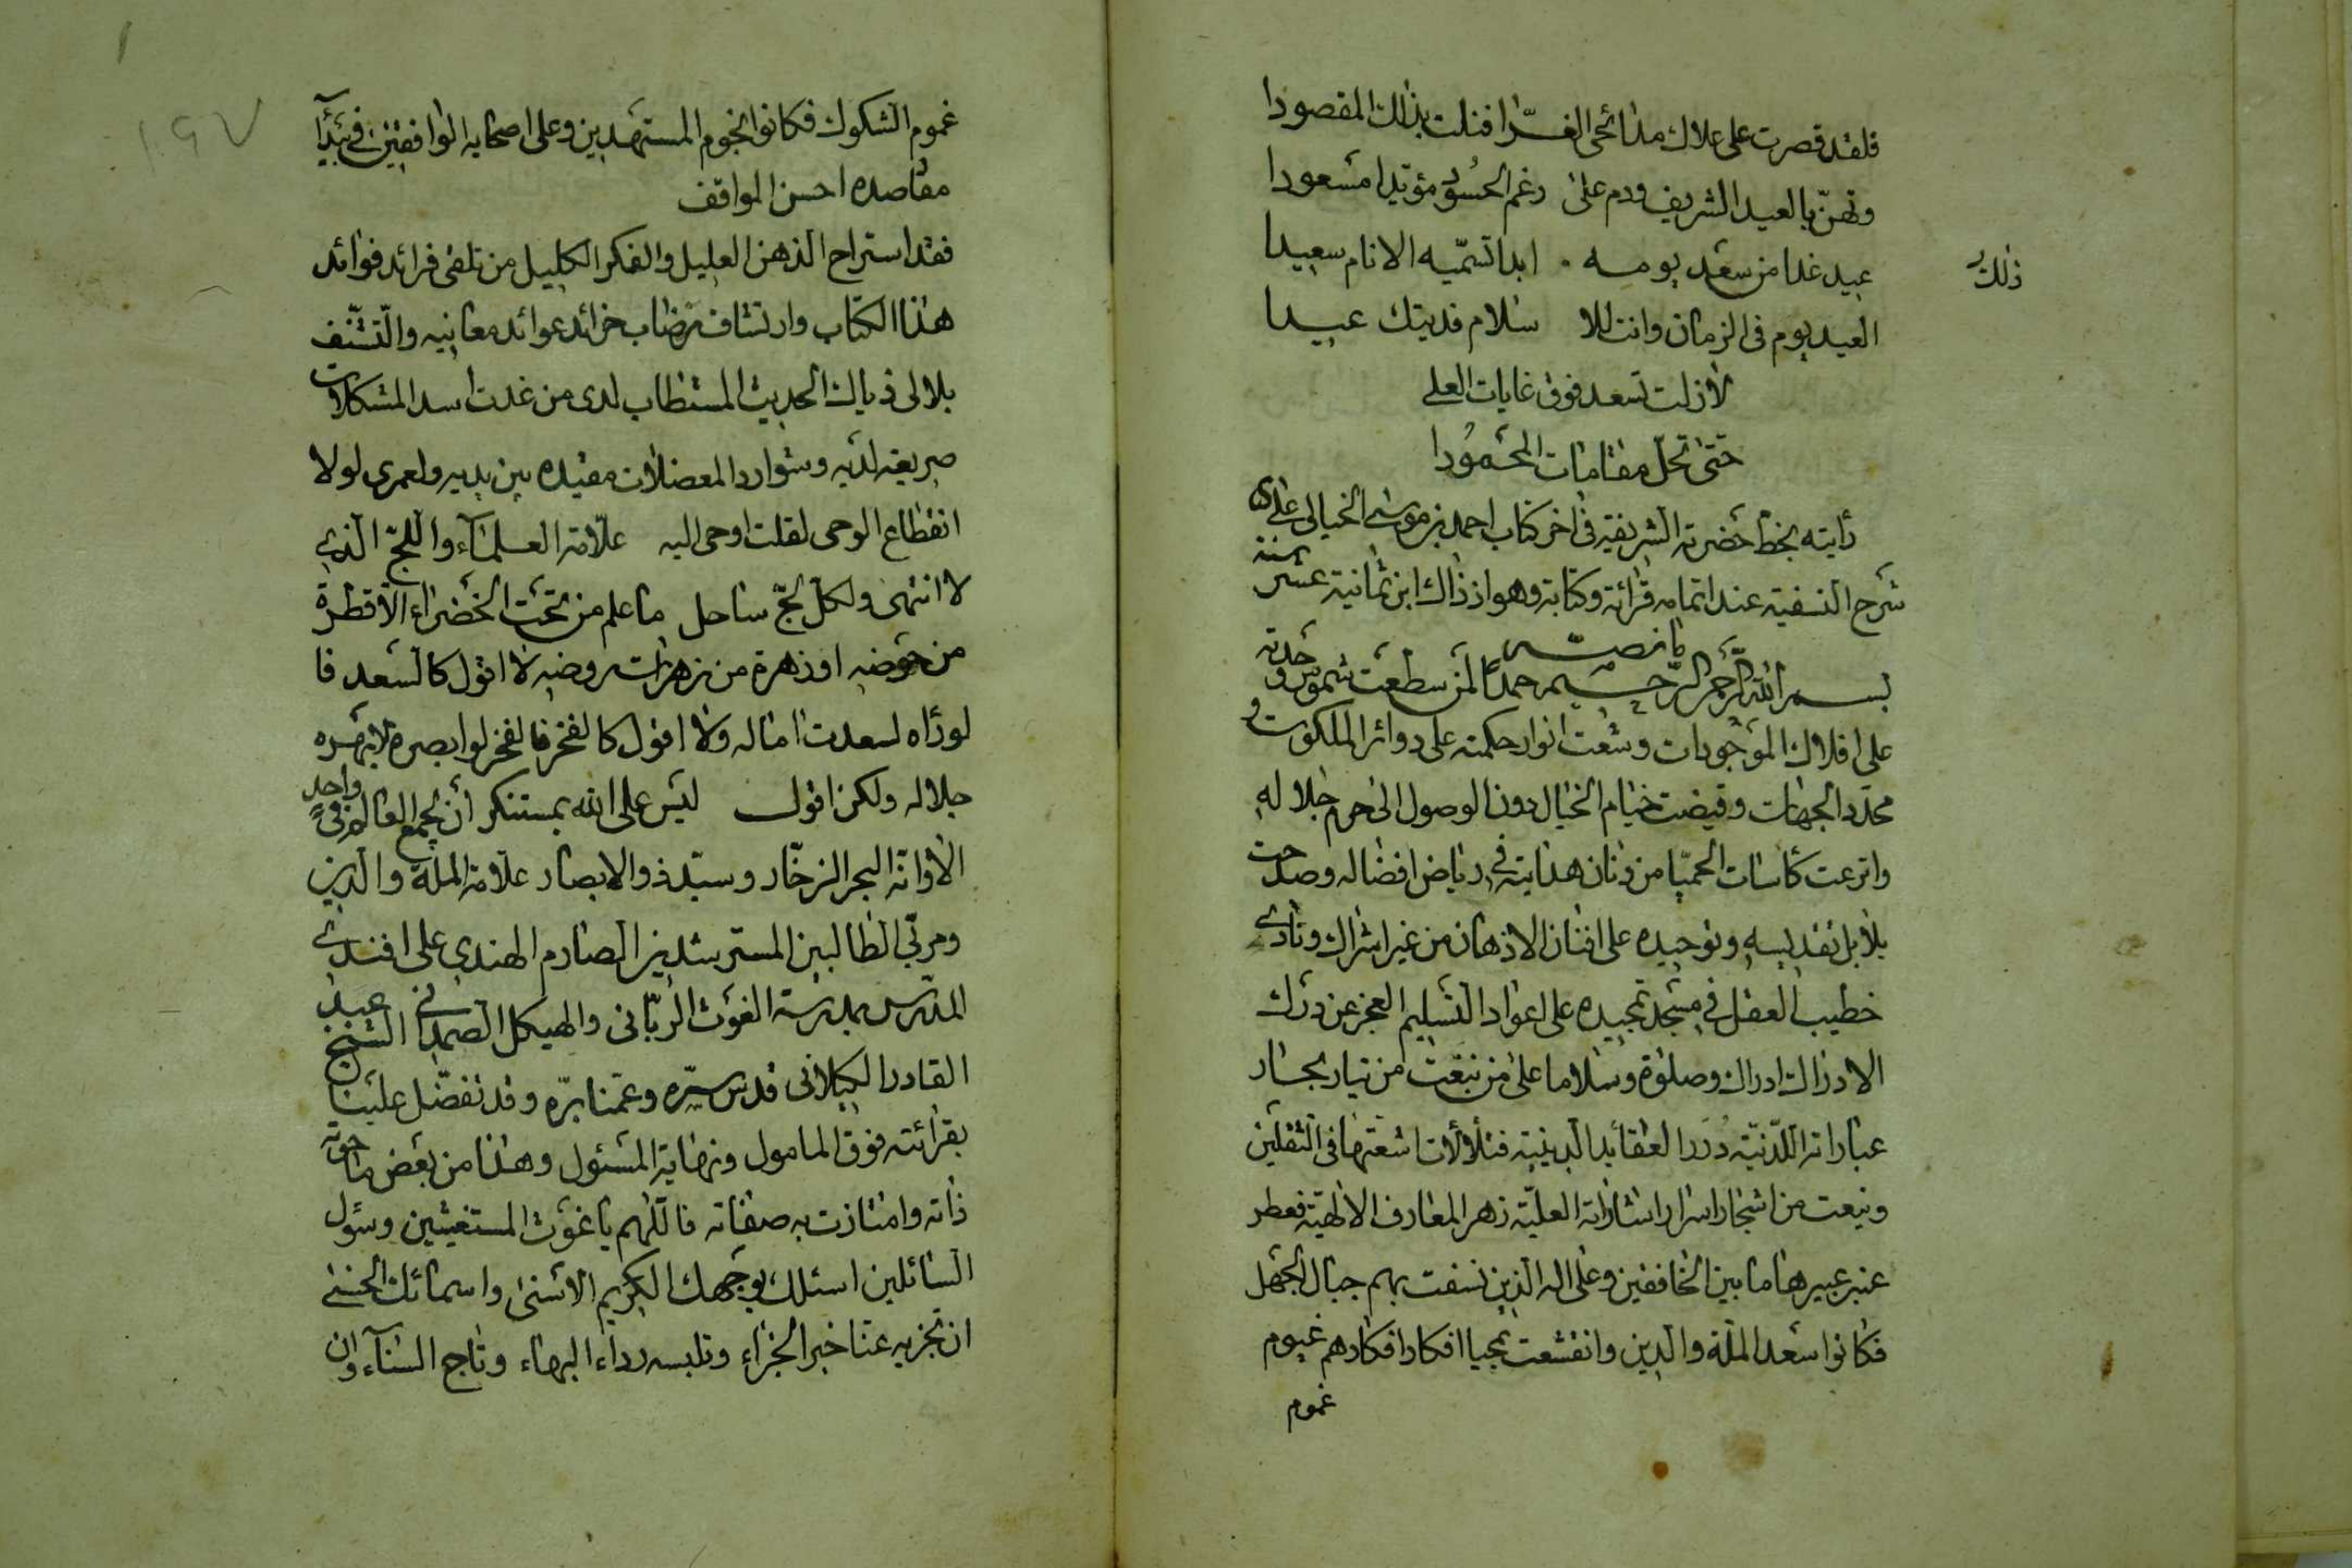 فلقد قصرت على علاك مدائحى الغرّا فنلت بذلك المقصودا
وتهنّ بالعيد الشريف ودم على رغم الحسُود مؤيدا مسعودا
عيد غدا من سعد يومه ابدا تسمّيه الانام سعيدا
ذلك
العيد يوم فى الزمان وانت للا سلام قد بتك عيدا
لازلت تسعد فوق غايات العلى
حتى تحلّ مقامات المحمُودا
رأيته بخط حضرته الشريفة فى اخر كتاب احمد بن موسى الخيالى على
شرح النسفية عند اتمامه قرائة وكتابة وهو اذ ذاك ابن ثمانية عشر سنة
ما نصه
بسم الله الرحمن الرحيم حمدًا لمن سطعت شموس وحدته
على افلاك الموجودات وشعت انوار حكمته على دوائر الملكوت و
محدد الجهات وقيضت خيام الخيال دون الوصول الى حرم جلاله
واترعت كأسات الحميّا من دنان هدايته فى رياض افضاله وصدحت
بلابل تقديسه وتوحيده على افنان الاذهان من غير اشراك ونادى
خطيب العقل فى مسجد تمجيده على اعواد التسليم العجز عن درك
الادراك ادراك وصلوة وسلاما على من نبعت من تيار بحار
عباراته اللدنيّة دُرر العقائد الدينية فتلألأت اشعتها فى الثقلين
ونبعت من اشجار اسرار اشاراته العليّة زهر المعارف الالهية فعطر
عنبر عبيرها ما بين الخافقين وعلى اله الذين نسفت بهم جبال الجهل
فكانوا سعد الملة والدين وانقشعت بمحيا افكار افكارهم غيوم
غموم
غموم الشكوك فكانوا نجوم المستهدين وعلى اصحابه الواقفين فى بيدآ
مقاصده احسن المواقف
فقد استراح الذهن العليل والفكر الكليل من تلقى فرائد فوائد
هذا الكتاب وارتشاف رضاب خرائد عوائد معانيه والتشنّف
بلالى ذياك الحديث المستطاب لدى من غدت اسد المشكلات
صريعة لديه وشوارد المعضلات مقيده بين يديه ولعمرى لولا
انقطاع الوحى لقلت اوحى اليه علّامة العلمآء واللجّ الذى
لا انتهى ولكل لجّ ساحل ما علم من تحت الخضراء الا قطرة
من حوضه او زهرة من زهرات روضه لا اقول كالسعد فا
لو رأه لسعدت اماله ولا اقول كالفخر فالفخر لو ابصره لابهره
جلاله ولكن اقول ليس على الله بمستنكر أن يجمع العالم فى واحدٍ
الا وانّه البحر الزخّار وسيّد ذوالابصار علامة الملة والدين
ومربّى الطالبين المسترشدين الصارم الهندى على افندى
المدرس بمدرسة الغوث الربّانى والهيكل الصمدانى الشيخ عبد
القادر الكيلانى قدس سرّه وعمّنا برّه وقد تفضّل علينا
بقرائته فوق المامول ونهاية المسئول وهذا من بعض ما حوته
ذاته وامتازت به صفاته فاللّهم يا غوث المستغيثين وسؤل
السائلين اسئلك بوجهك الكريم الاسنى واسمائك الحسنى
ان تجزيه عنّا خير الجزاء وتلبسه رداء البهاء وتاج السنآء وان